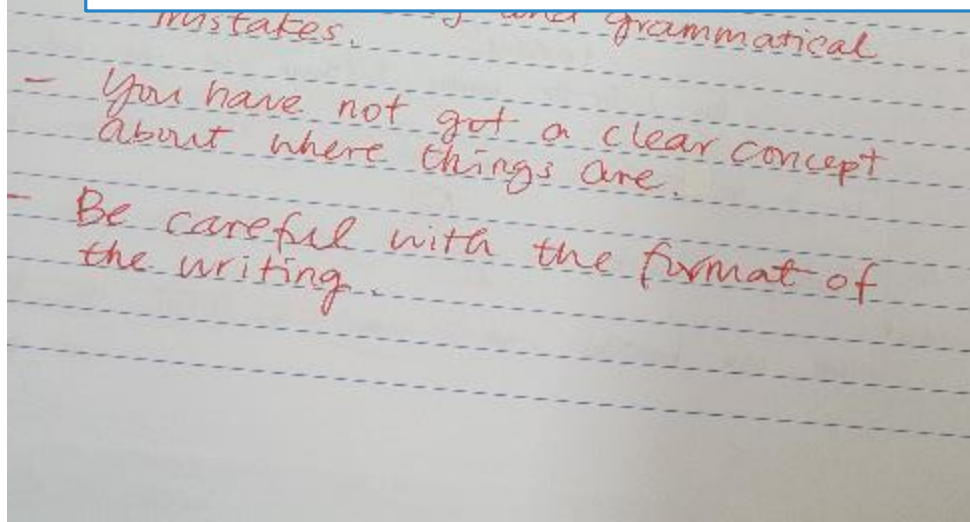 and grammatical
mistakes.
- You have not got a clear concept
about where things are.
- Be careful with the format of
the writing.